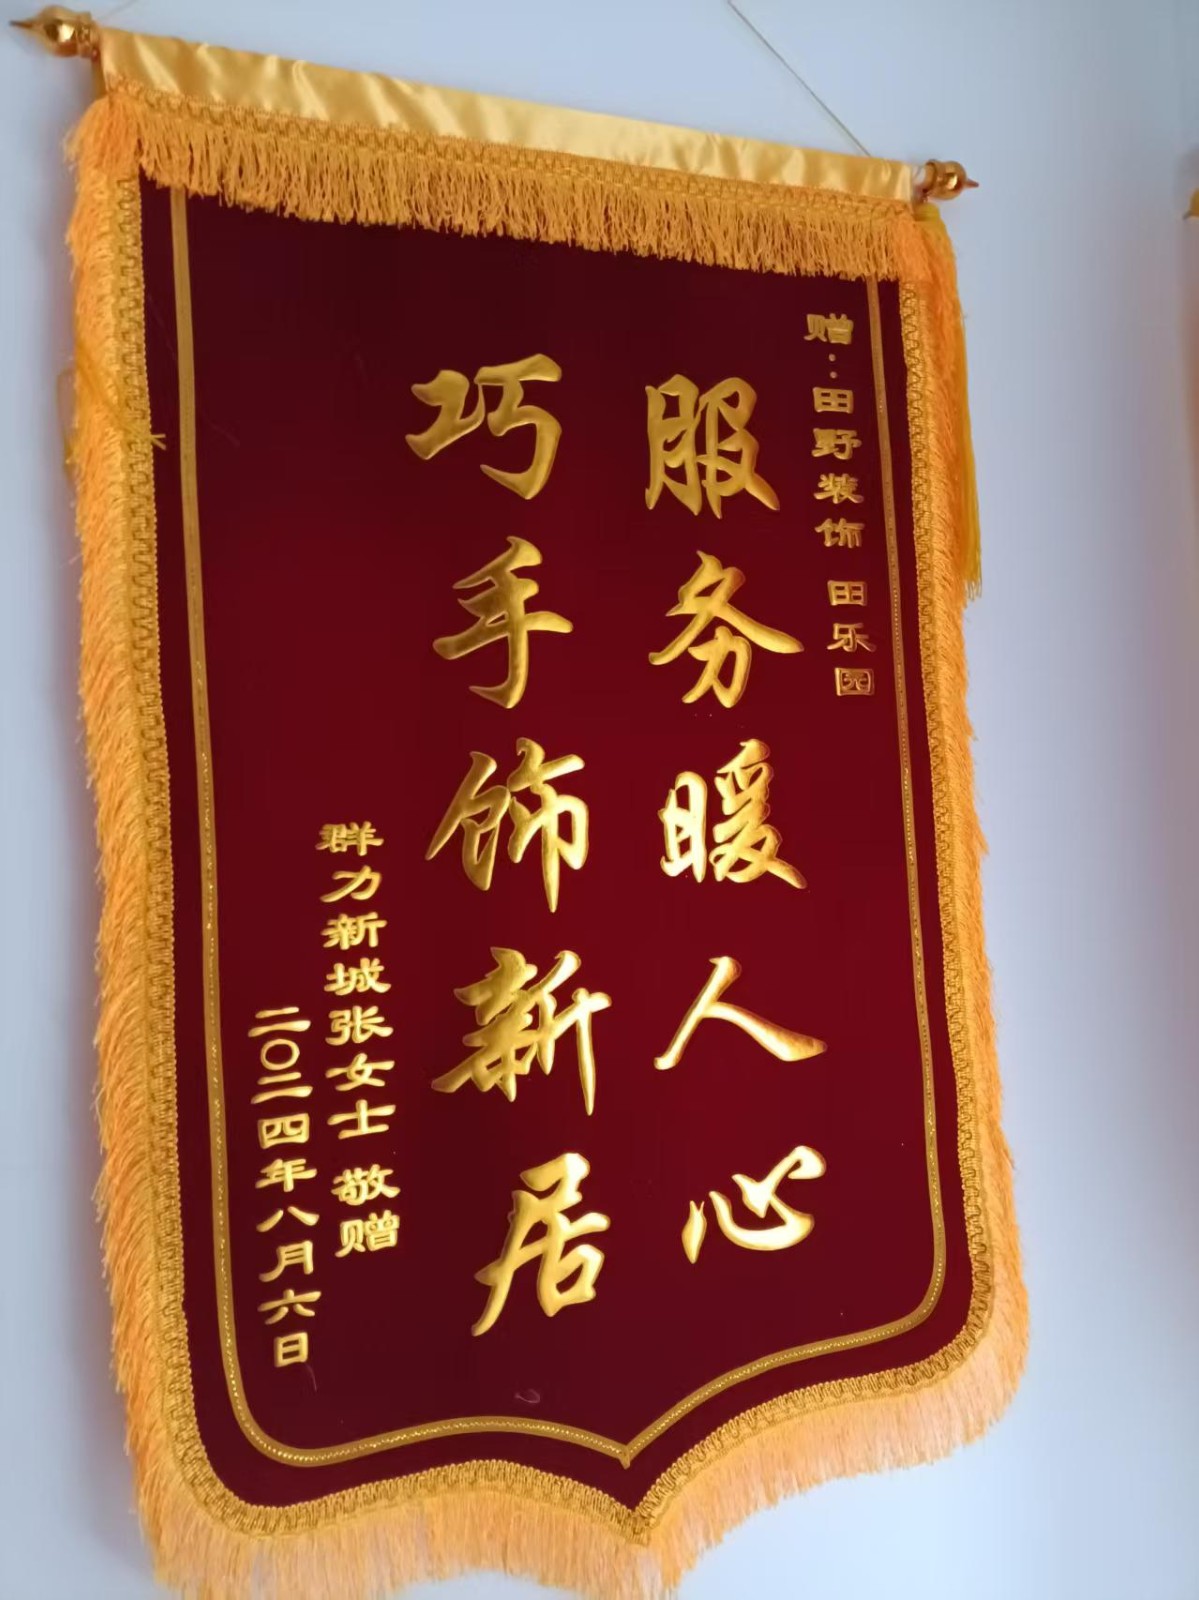 赠：田野装饰 田乐园
服务暖人心
巧手饰新居
群力新城张女士 敬赠
二〇二四年八月六日